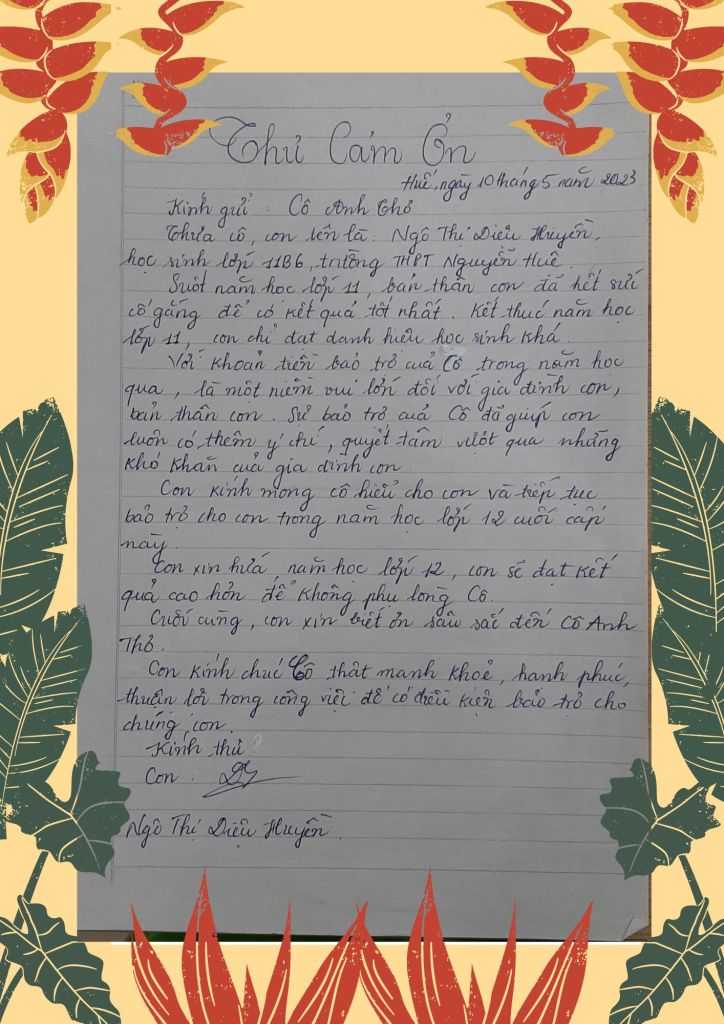 Thư Cảm Ơn
Huế, ngày 10 tháng 5 năm 2023
Kính gửi : Cô Anh Thơ
Thưa cô, con tên là : Ngô Thị Diệu Huyền,
học sinh lớp 11B6, trường THPT Nguyễn Huệ.
Suốt năm học lớp 11, bản thân con đã hết sức
cố gắng để có kết quả tốt nhất. Kết thúc năm học
lớp 11, con chỉ đạt danh hiệu học sinh khá.
Với khoản tiền bảo trợ của Cô trong năm học
qua, là một niềm vui lớn đối với gia đình con,
bản thân con. Sự bảo trợ của Cô đã giúp con
luôn có thêm ý chí, quyết tâm vượt qua những
khó khăn của gia đình con.
Con kính mong cô hiểu cho con và tiếp tục
bảo trợ cho con trong năm học lớp 12 cuối cấp
này.
Con xin hứa năm học lớp 12, con sẽ đạt kết
quả cao hơn để không phụ lòng Cô.
Cuối cùng, con xin biết ơn sâu sắc đến Cô Anh
Thơ.
Con kính chúc Cô thật mạnh khoẻ, hạnh phúc,
thuận lợi trong công việc để có điều kiện bảo trợ cho
chúng con.
Kính thư !
Con :
Ngô Thị Diệu Huyền.